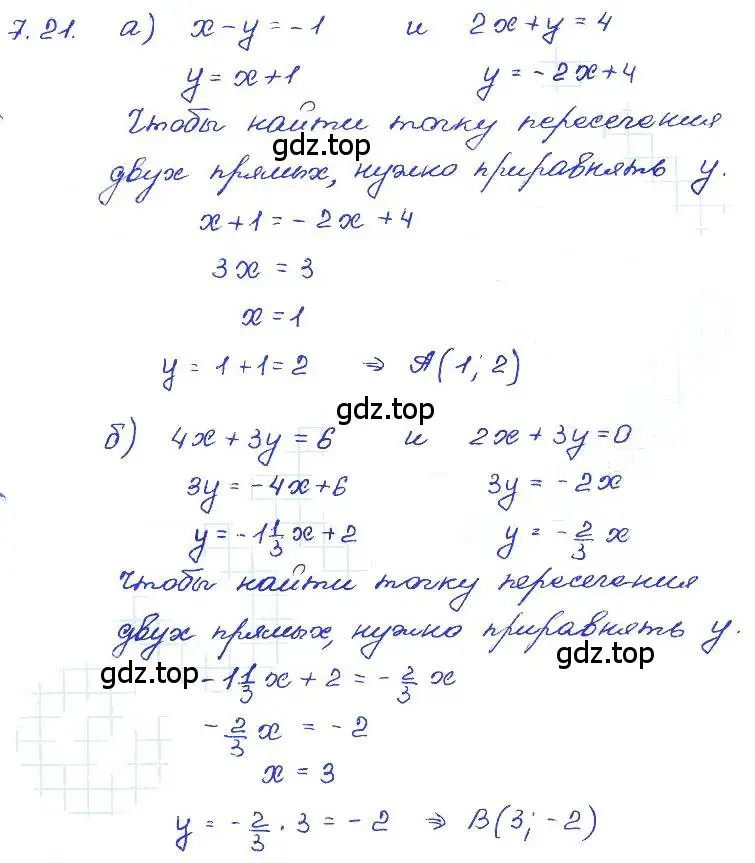 7.21. а) x - y = -1 и 2x + y = 4
y = x + 1 y = -2x + 4
Чтобы найти точку пересечения
gdz.top
двух прямых, нужно приравнять y.
x + 1 = -2x + 4
3x = 3
x = 1
y = 1 + 1 = 2 ⇒ A(1; 2)
gdz.top
б) 4x + 3y = 6 и 2x + 3y = 0
3y = -4x + 6 3y = -2x
y = -1 1/3 x + 2 y = -2/3 x
Чтобы найти точку пересечения
двух прямых, нужно приравнять y.
gdz.top
gdz.top
-1 1/3 x + 2 = -2/3 x
-2/3 x = -2
x = 3
y = -2/3 · 3 = -2 ⇒ B(3; -2)